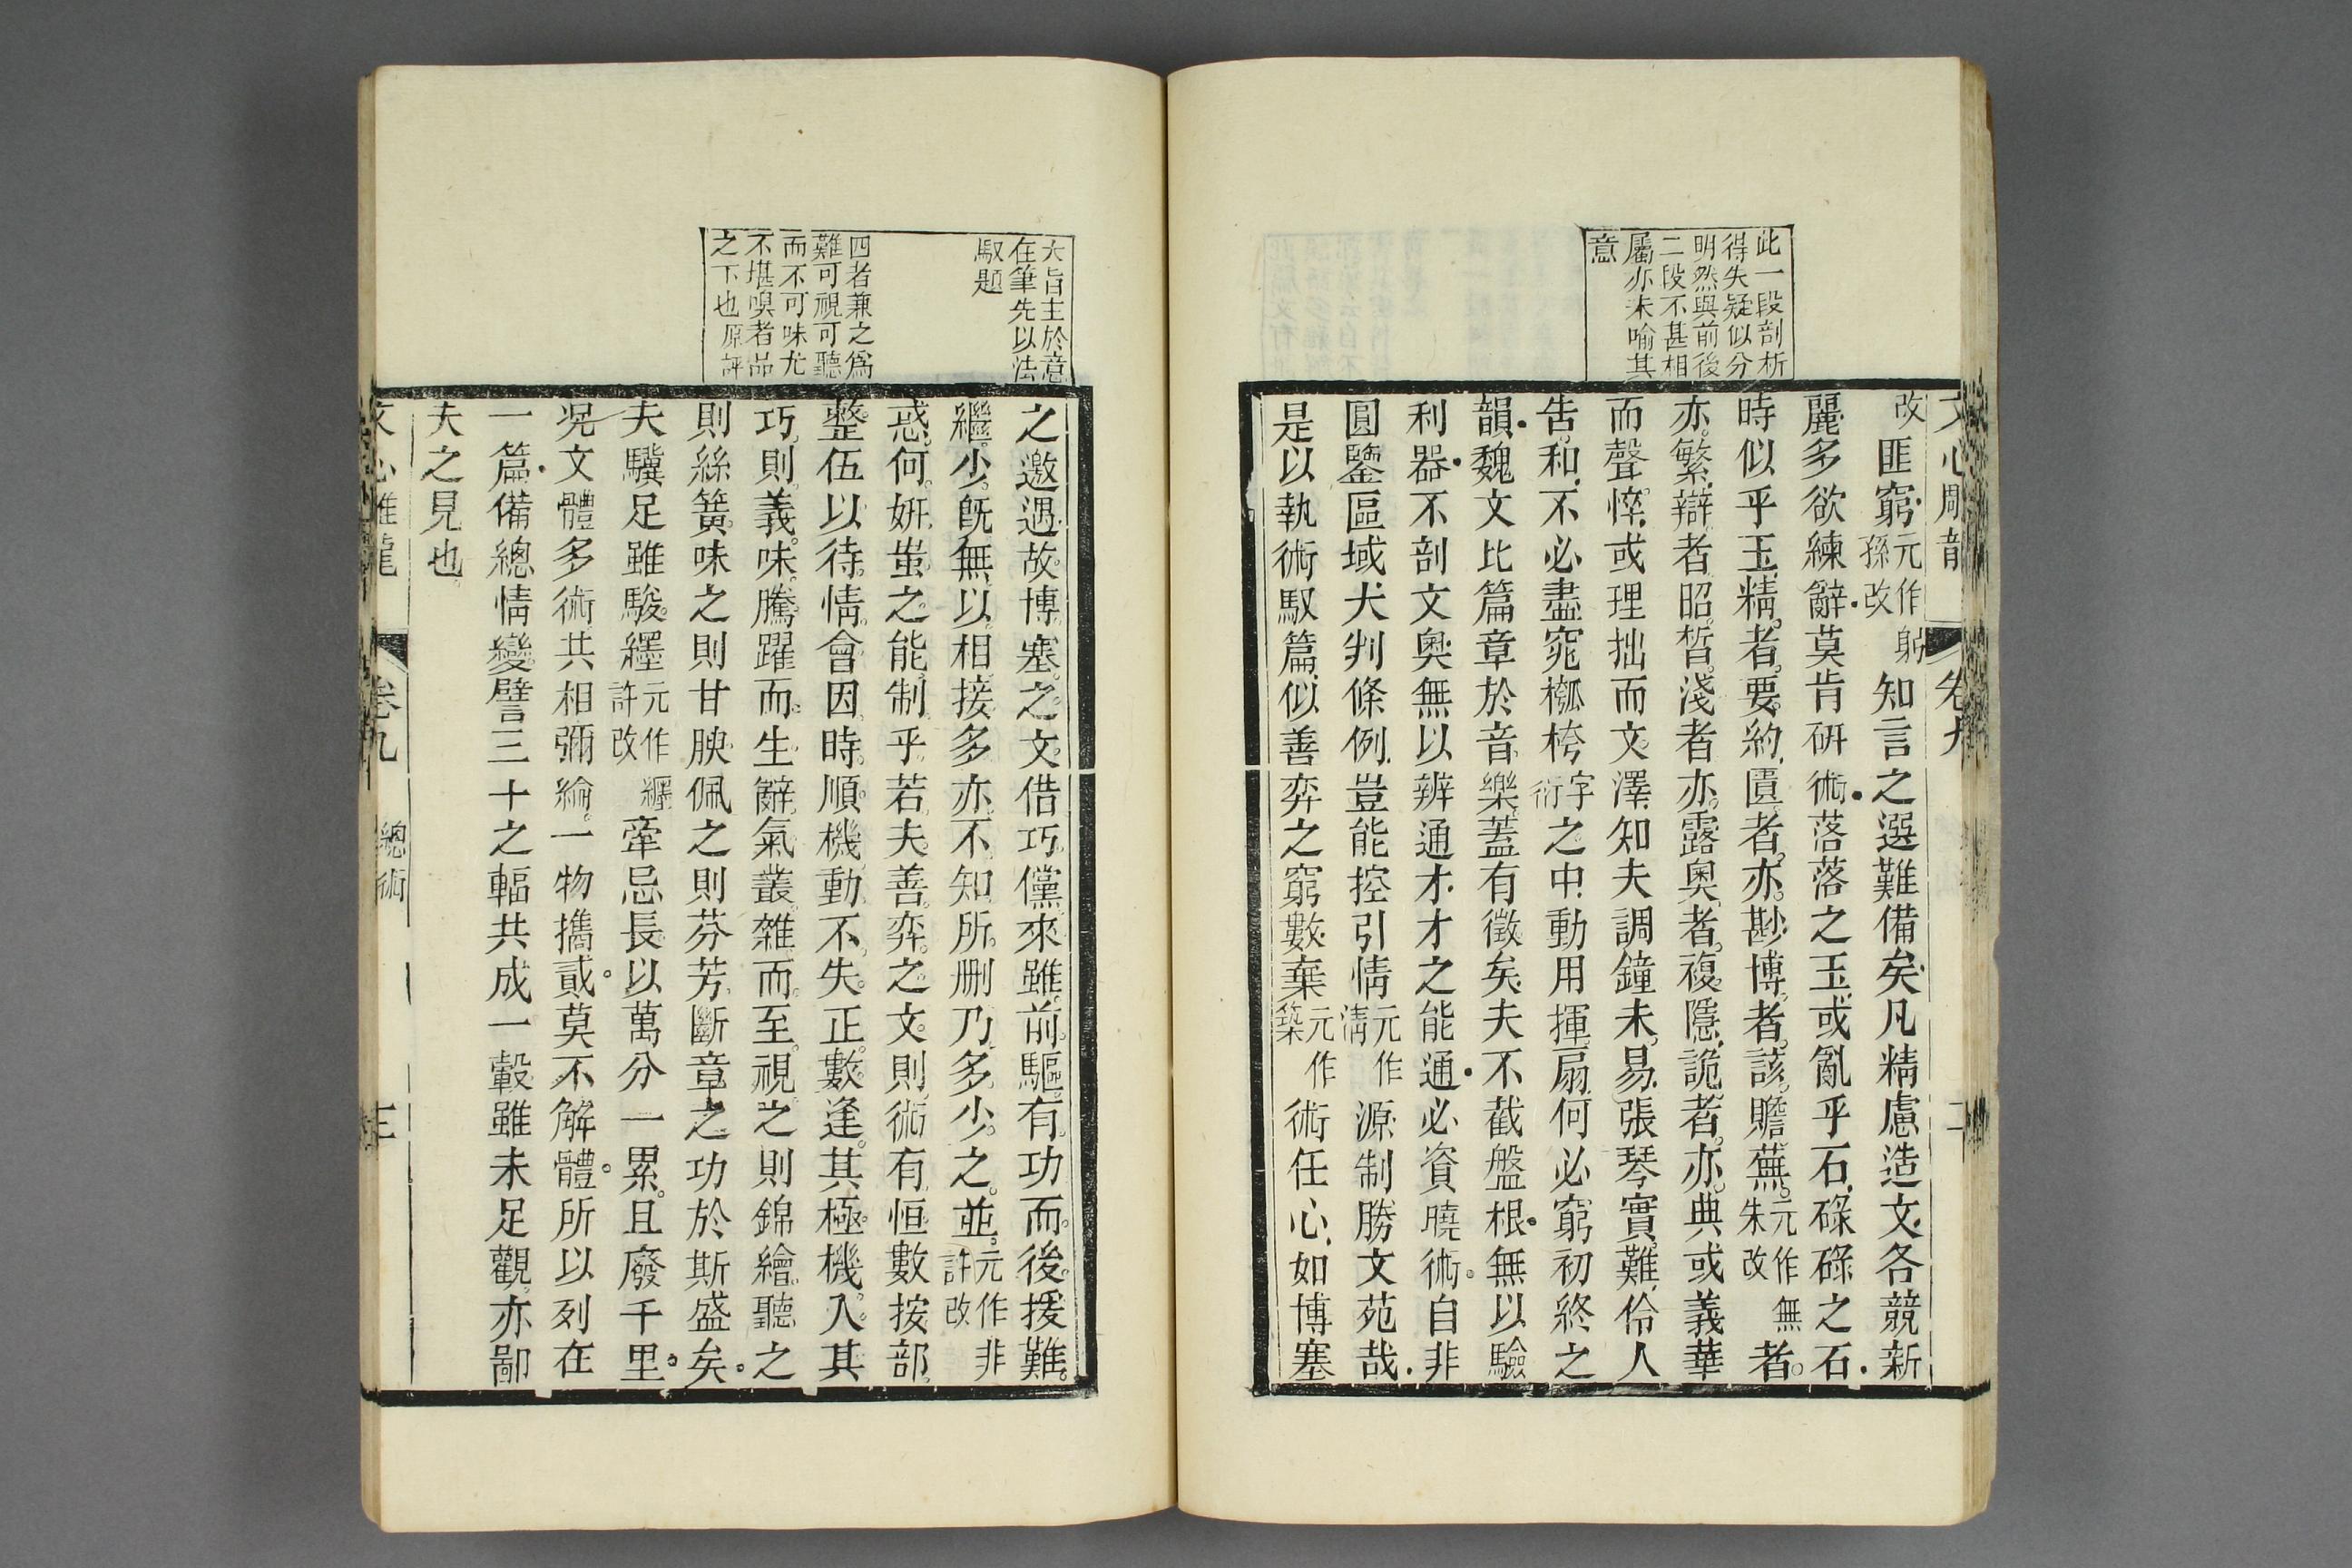 此一段剖析
得失疑似分
明然與前後
二段不甚相
屬亦未喻其
意
文心雕龍 卷九 二
改匪窮元作躬孫改知言之選難備矣凡精慮造文各競新
麗多欲練辭莫肯研術落落之玉或亂乎石碌碌之石
時似乎玉精者要約匱者亦尠博者該贍蕪元作無朱改者
亦繁辯者昭晳淺者亦露奧者複隱詭者亦典或義華
而聲悴或理拙而文澤知夫調鐘未易張琴實難伶人
告和不必盡窕槬桍字衍之中動用揮扇何必窮初終之
韻魏文比篇章於音樂蓋有徵矣夫不截盤根無以驗
利器不剖文奧無以辨通才才之能通必資曉術自非
圓鑒區域大判條例豈能控引情元作清源制勝文苑哉
是以執術馭篇似善弈之窮數棄元作築術任心如博塞
大旨主於意
在筆先以法
馭題
四者兼之爲
難可視可聽
而不可味尤
不堪嗅者品
之下也原評
之邀遇故博塞之文借巧儻來雖前驅有功而後援難
繼少旣無以相接多亦不知所刪乃多少之並元作非許改
惑何妍蚩之能制乎若夫善弈之文則術有恒數按部
整伍以待情會因時順機動不失正數逢其極機入其
巧則義味騰躍而生辭氣叢雜而至視之則錦繪聽之
則絲簧味之則甘腴佩之則芬芳斷章之功於斯盛矣
夫驥足雖駿纆元作纏許改牽忌長以萬分一累且廢千里
况文體多術共相彌綸一物攜貳莫不解體所以列在
一篇備總情變譬三十之輻共成一轂雖未足觀亦鄙
夫之見也
文心雕龍 卷九 總術 三